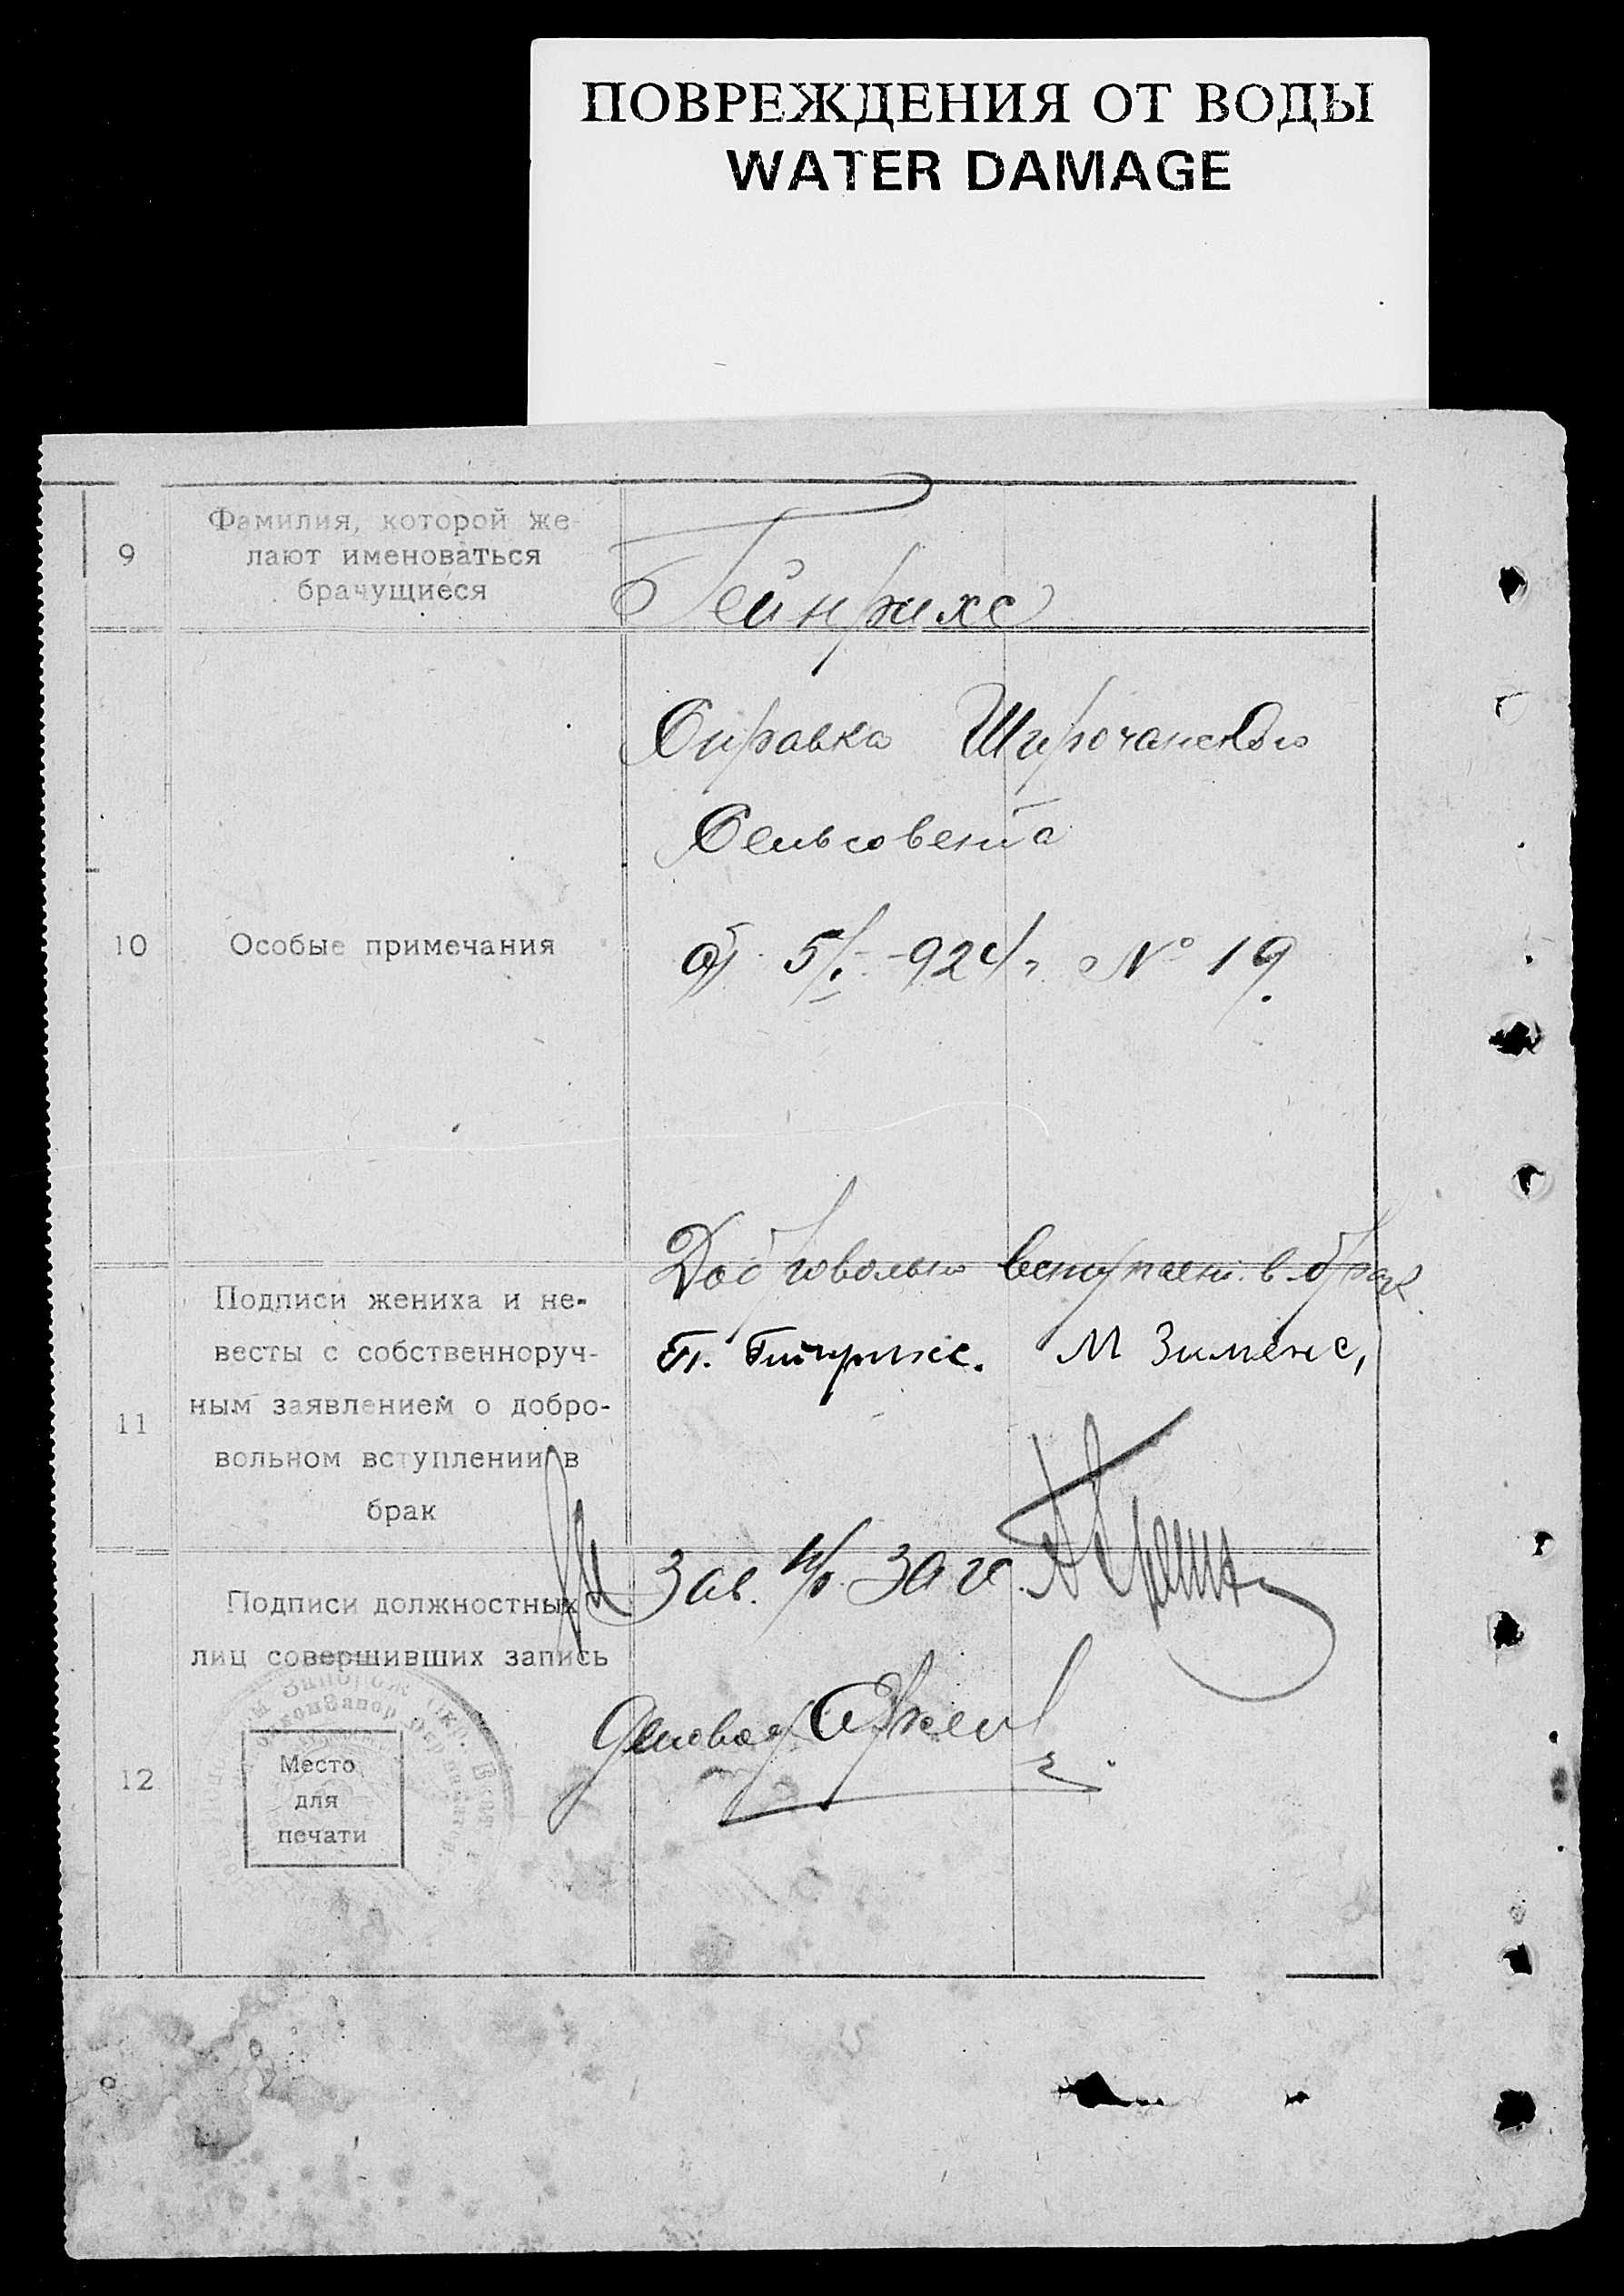 ПОВРЕЖДЕНИЯ ОТ ВОДЫ
WATER DAMAGE
9
Фамилия, которой же-
лают именоваться
брачущиеся
Гейнрихс
10
Особые примечания
Справка Широчанского
Сельсовета
от 5/I-924 г. № 19.
11
Подписи жениха и не-
весты с собственноруч-
ным заявлением о добро-
вольном вступлении в
брак
Добровольно вступаем в брак
П. Гейнрихс. М Зименс,
12
Подписи должностных
лиц совершивших запись
Зав. п/о. Загс.
Деловод
Место
для
печати